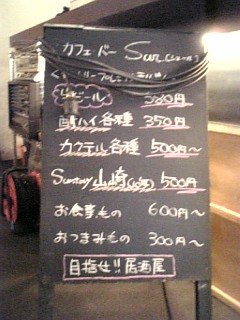 カフェバー Sur
生ビール 380円
酎ハイ各種 350円
カクテル各種 500円〜
Suntory 山崎(10年) 500円
お食事もの 600円〜
おつまみもの 300円〜
目指せ!!居酒屋